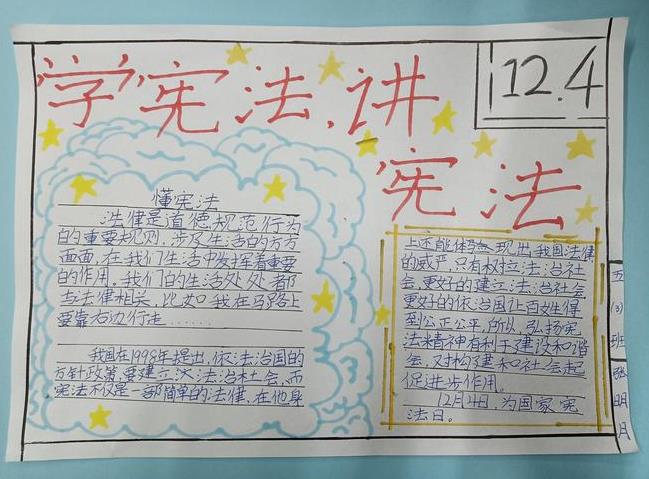 学宪法,讲
宪法
12.4
懂宪法
法律是道德规范行为
的重要规则,涉及生活的方方
面面,在我们生活中发挥着重要
的作用。我们的生活处处都
与法律相关,比如我在马路上
要靠右边行走……
我国在1998年提出,依法治国的
方针政策,要建立法治社会,而
宪法不仅是一部简单的法律,在他身
上还能体现出我国法律
的威严,只有树立法治社
会,更好的建立法治社会
更好的依治国让百姓得
到公正公平,所以,弘扬宪
法精神有利于建设和谐
会,对构建和社会起
促进步作用。
12月4日,为国家宪
法日。
五(3)班
张明月